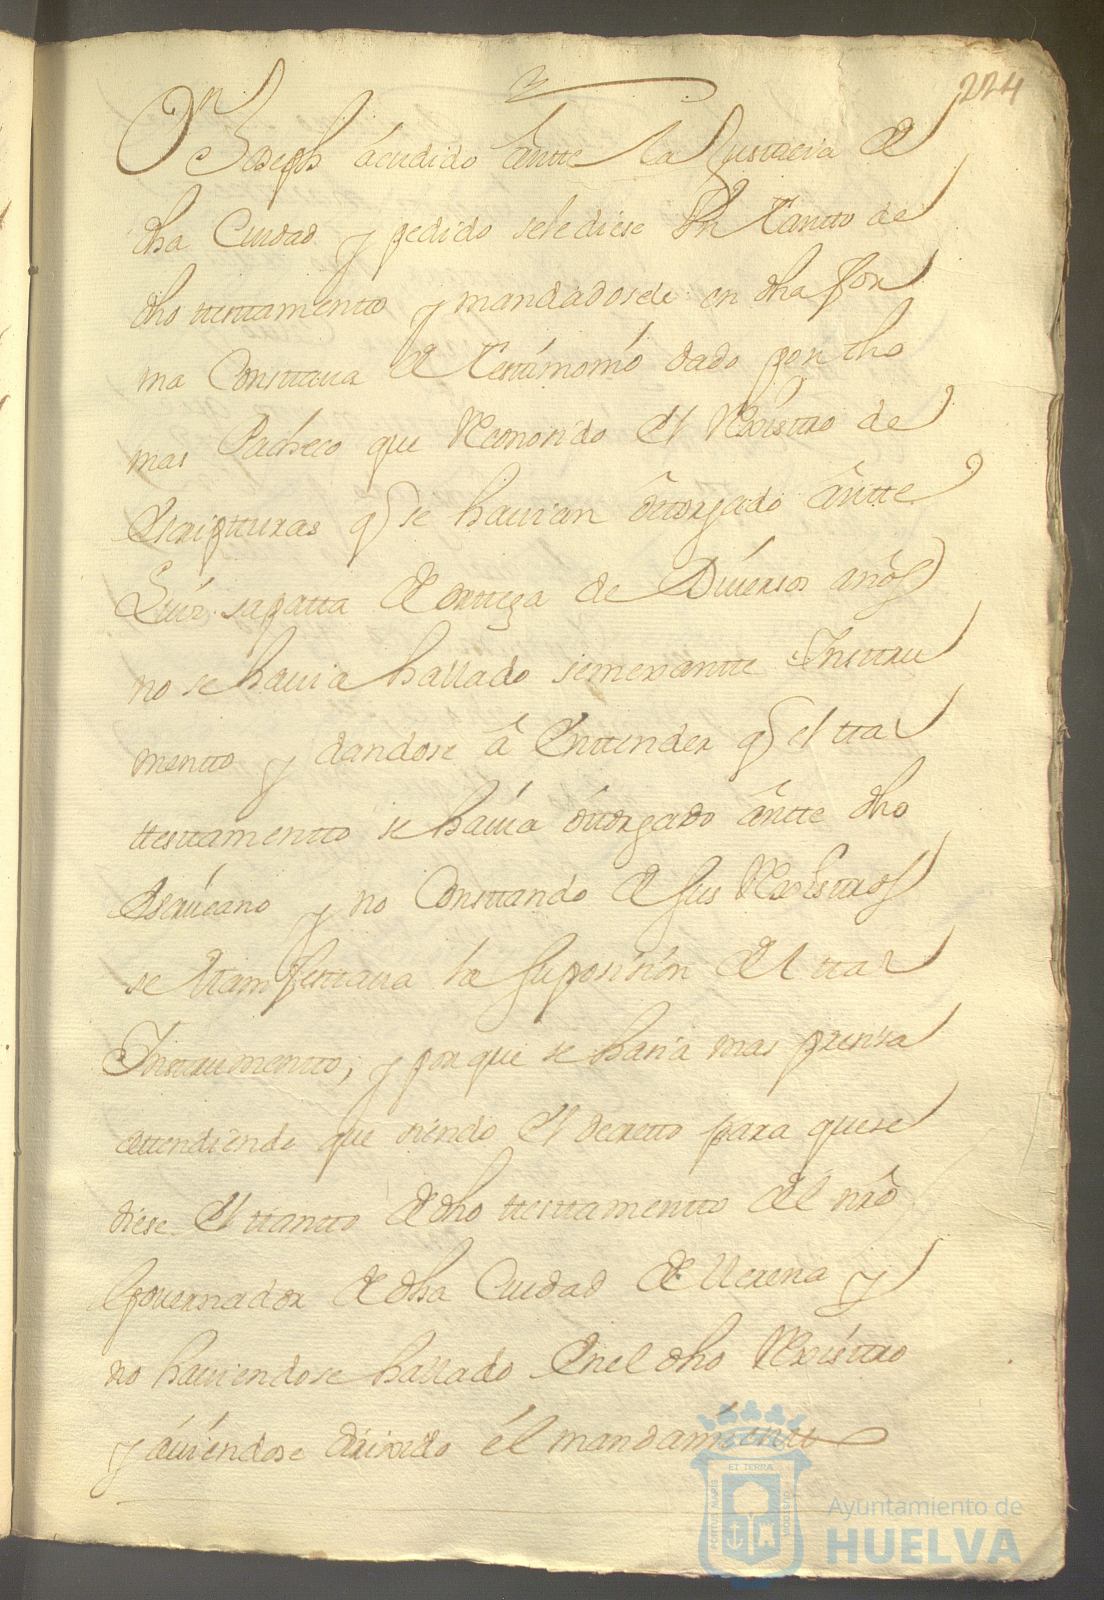 224
Dn Joseph acudido antte la Justicia de
dha Ciudad y pedido se le diese Un tantto de
dho testtamentto y mandadosele en dha for
ma Consttaua de testimonio dado por tho
mas Pacheco que Reconosido el Rexisttro de
escriptturas q se hauian ottorgado antte
Luis sapatta de orttega de Diversos años
no se hauia hallado semexantte Insttru
mentto y dandose a Enttender q el ttal
testtamentto se hauia ottorgado antte dho
escriuano y no Consttando de sus Rexisttros
se manifesttaua la suposision del ttal
Instrumentto; y porque se haria mas presisa
attendiendo que siendo el decretto para que se
diese el ttantto de dho testtamentto del nro
Gouernador de dha Ciudad de llerena y
no hauiendose hallado en el dho Rexisttro
y auiendose dirixido el mandamientto
ET TERRA
PORTUS MARIS
CUSTODIA
Ayuntamiento de
HUELVA